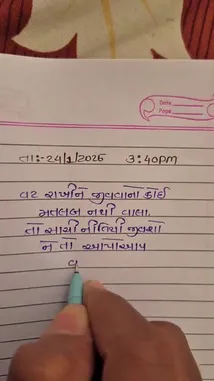 Date :
Page :
તા:-24/1/2026 3:40pm
વટ રાખીને જીવવાનો કોઈ
મતલબ નથી વાલા.
તો સાચી નીતિથી જીવશો
ને તો આપોઆપ
વ